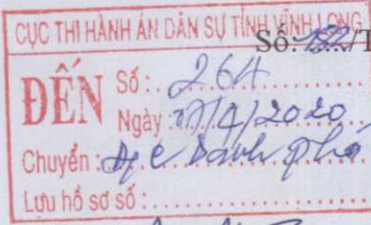 CỤC THI HÀNH ÁN DÂN SỰ TỈNH VĨNH LONG
Số: /T
ĐẾN
Số: 264
Ngày: 07/4/2020
Chuyển:
Lưu hồ sơ số: